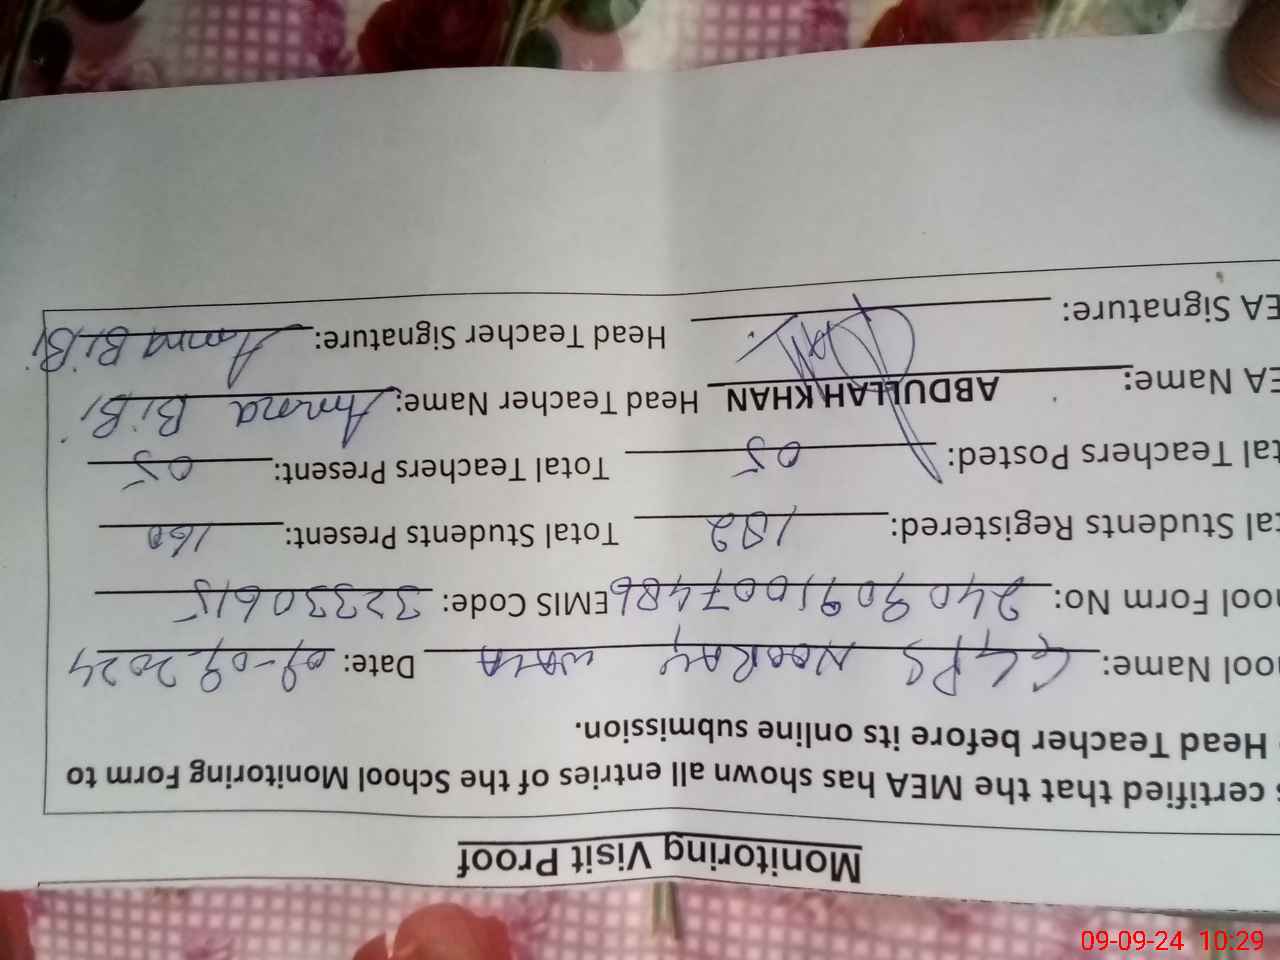 Monitoring Visit Proof
certified that the MEA has shown all entries of the School Monitoring Form to
Head Teacher before its online submission.
ool Name: GGPS NOORAY WALA Date: 09-09-2024
ool Form No: 2409091007486 EMIS Code: 32330615
tal Students Registered: 182 Total Students Present: 160
tal Teachers Posted: 05 Total Teachers Present: 05
EA Name: ABDULLAH KHAN Head Teacher Name: Amna BiBi
EA Signature: Head Teacher Signature: Amna BiBi
09-09-24 10:29